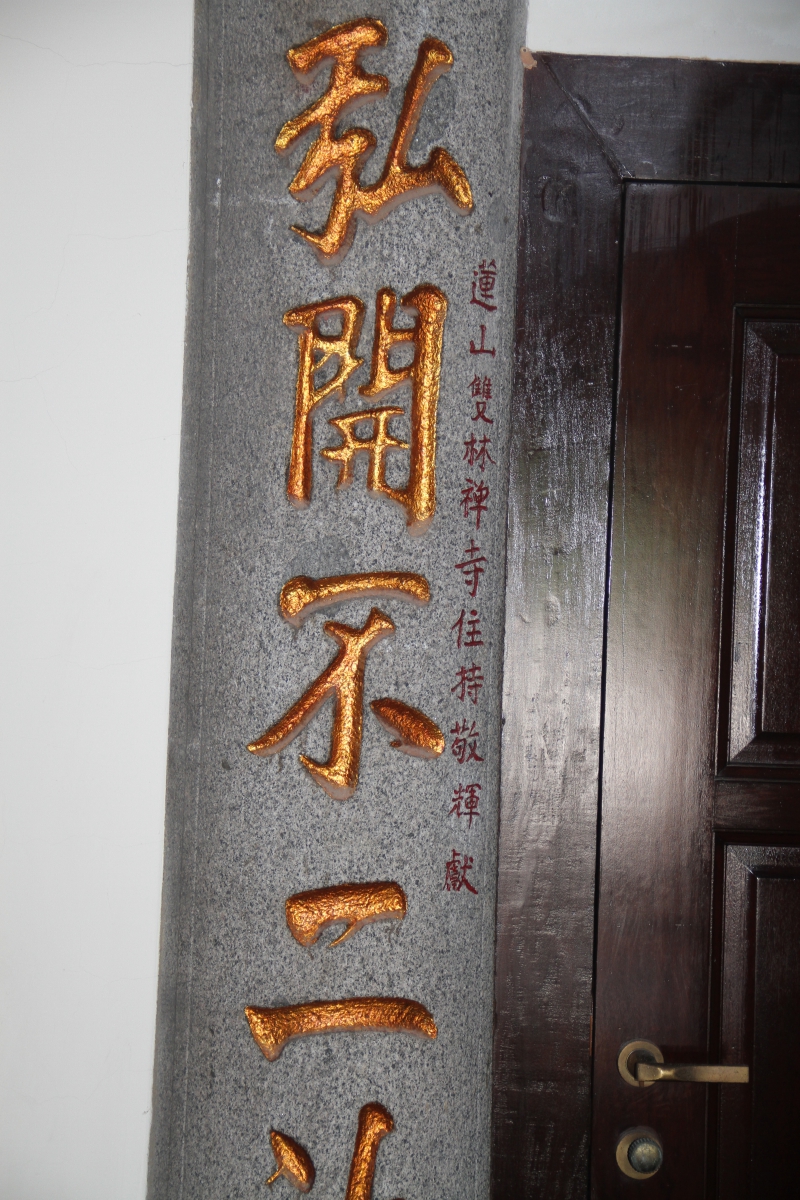 蓮山雙林禅寺住持敬輝獻
弘開不二